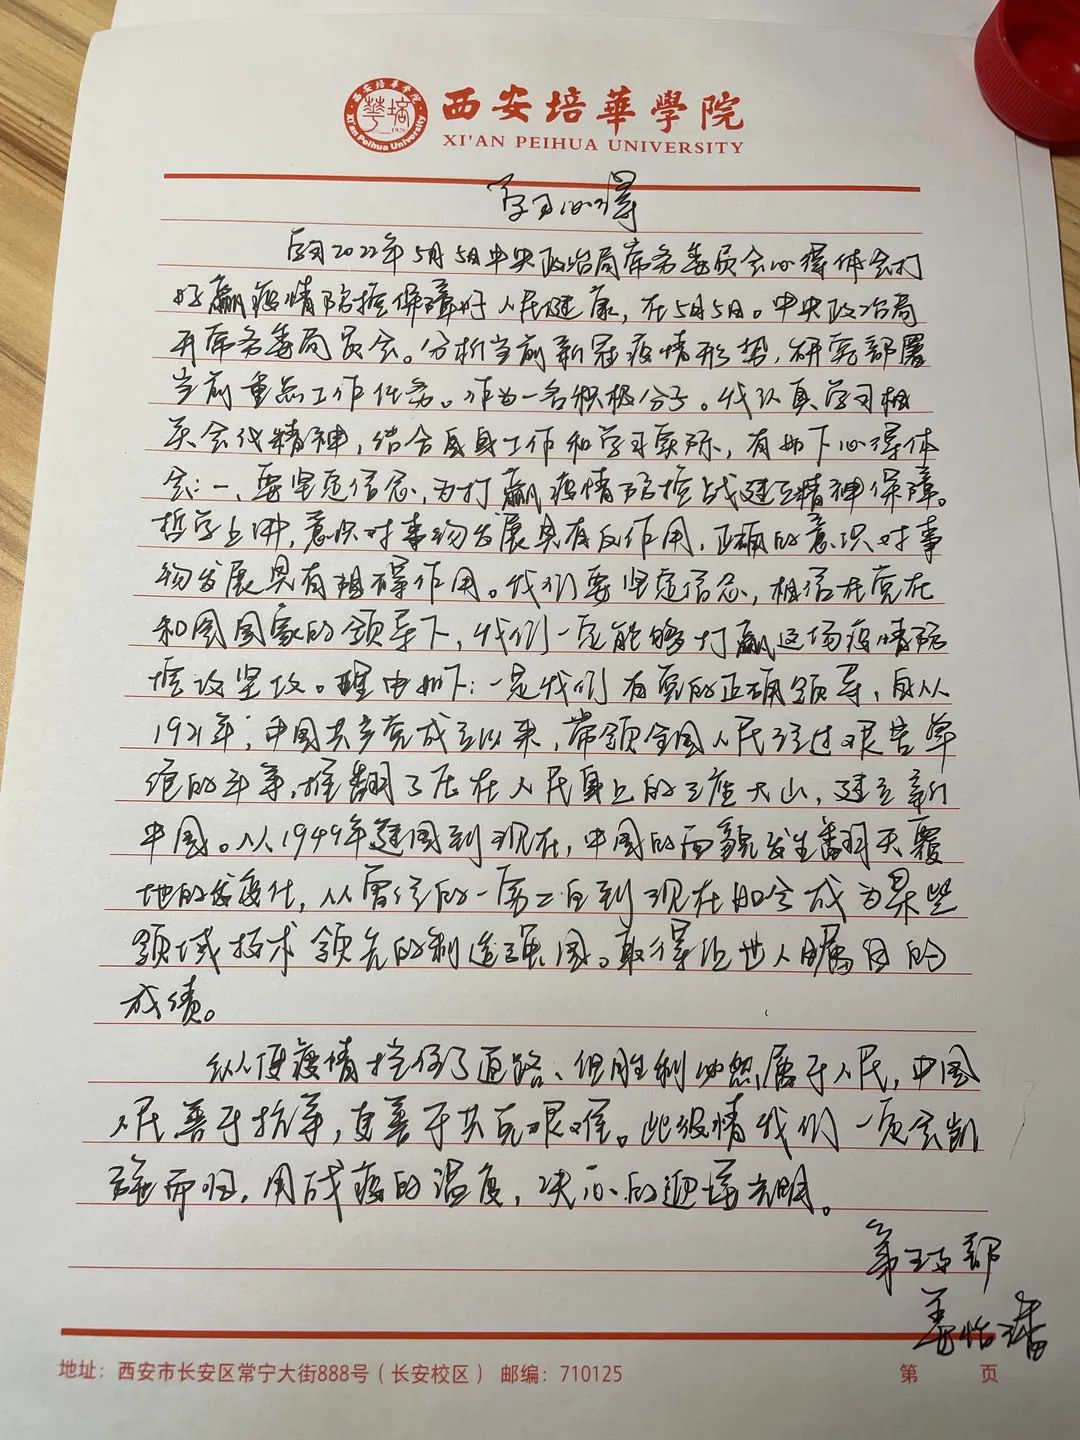 西安培華學院
XI'AN PEIHUA UNIVERSITY
学习心得
学习2022年5月5日中央政治局常务委员会心得体会打
好赢疫情防控保障好人民健康，在5月5日。中央政治局
开常务委局员会。分析当前新冠疫情形势，研究部署
当前重点工作任务。作为一名积极分子。我认真学习相
关会议精神，结合自身工作和学习实际，有如下心得体
会：一、要坚定信念，为打赢疫情防控战建立精神保障。
哲学上讲，意识对事物发展具有反作用，正确的意识对事
物发展具有相得作用。我们要坚定信念，相信在党在
和国国家的领导下，我们一定能够打赢这场疫情防
控攻坚攻。理由如下：一是我们有党的正确领导，自从
1921年，中国共产党成立以来，带领全国人民经过艰苦卓
绝的斗争，推翻了压在人民身上的三座大山，建立新
中国。从1949年建国到现在，中国的面貌发生翻天覆
地的变化，从曾经的一穷二白到现在如今成为某些
领域技术领先的制造强国。取得让世人瞩目的
成绩。
纵使疫情挡住了道路、但胜利必然属于人民，中国
人民善于抗争，更善于共克艰难。此役情我们一定会凯
旋而归，用战疫的温度，决心的迎接光明。
第三支部
姜怡
地址：西安市长安区常宁大街888号（长安校区） 邮编：710125
第 页